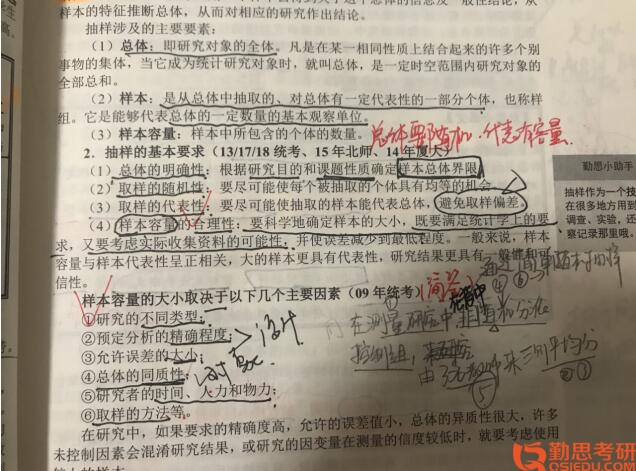 样本的特征推断总体，从而对相应的研究作出结论。
抽样涉及的主要要素：
（1）总体：即研究对象的全体。凡是在某一相同性质上结合起来的许多个别
事物的集体，当它成为统计研究对象时，就叫总体，是一定时空范围内研究对象的
全部总和。
（2）样本：是从总体中抽取的、对总体有一定代表性的一部分个体，也称样
组。它是能够代表总体的一定数量的基本观察单位。
（3）样本容量：样本中所包含的个体的数量。
2．抽样的基本要求（13/17/18 统考、15 年北师、14 年厦大）
（1）总体的明确性：根据研究目的和课题性质确定样本总体界限
（2）取样的随机性：要尽可能使每个被抽取的个体具有均等的机会
（3）取样的代表性：要尽可能使抽取的样本能代表总体，避免取样偏差。
（4）样本容量的合理性：要科学地确定样本的大小，既要满足统计学上的要
求，又要考虑实际收集资料的可能性，并使误差减少到最低程度。一般来说，样本
容量与样本代表性呈正相关，大的样本更具有代表性，研究结果更具有一般性和可
信性。
样本容量的大小取决于以下几个主要因素（09 年统考）
（简答）
①研究的不同类型；
②预定分析的精确程度；
③允许误差的大小；
④总体的同质性；
⑤研究者的时间、人力和物力；
⑥取样的方法等。
在研究中，如果要求的精确度高，允许的误差值小，总体的异质性很大，许多
未控制因素会混淆研究结果，或研究的因变量在测量的信度较低时，就要考虑使用
勤思小助手
抽样作为一个技
在很多地方用到
调查、实验，还
察记录那里哦。
勤思考研
QSIEDU.COM